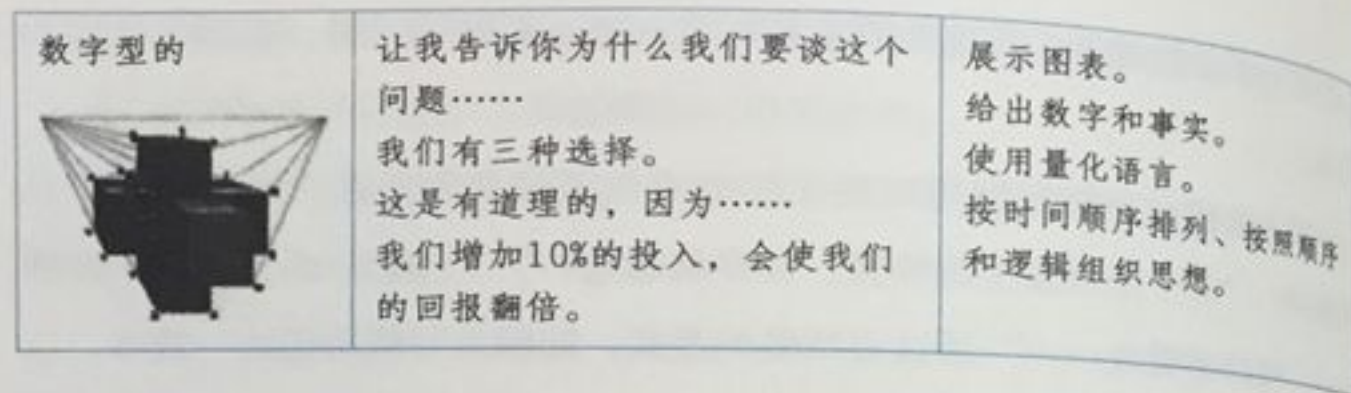 数字型的
让我告诉你为什么我们要谈这个
问题……
我们有三种选择。
这是有道理的，因为……
我们增加10%的投入，会使我们
的回报翻倍。
展示图表。
给出数字和事实。
使用量化语言。
按时间顺序排列、按照顺序
和逻辑组织思想。